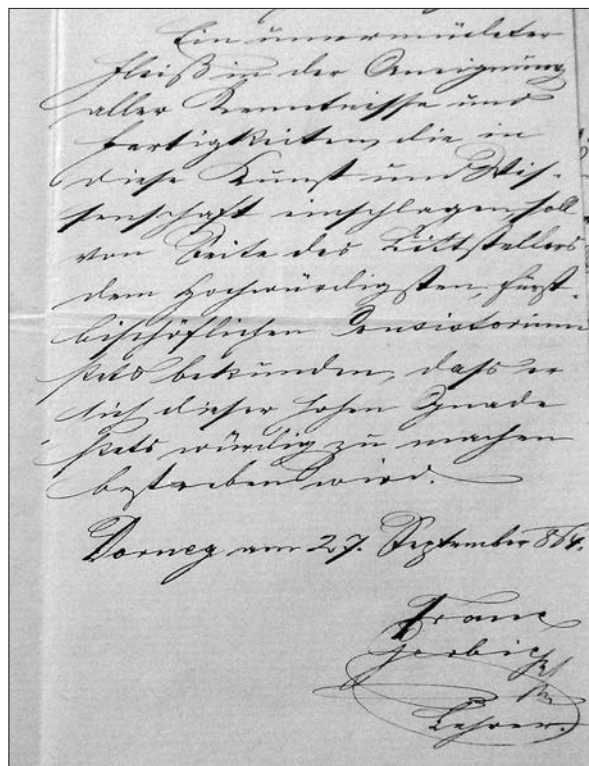 Ein unermüdeter
Fleiß in der Aneignung
aller Kenntnisse und
Fertigkeiten, die in
diese Kunst und Wis-
senschaft einschlagen, soll
von Seite des Bittstellers
dem hochwürdigsten, fürst-
bischöflichen Consistorium
stets bekunden, dass er
sich dieser hohen Gnade
stets würdig zu machen
bestreben wird.
Dorneg am 27. September 864.
Franc
Gerbic
Lehrer.